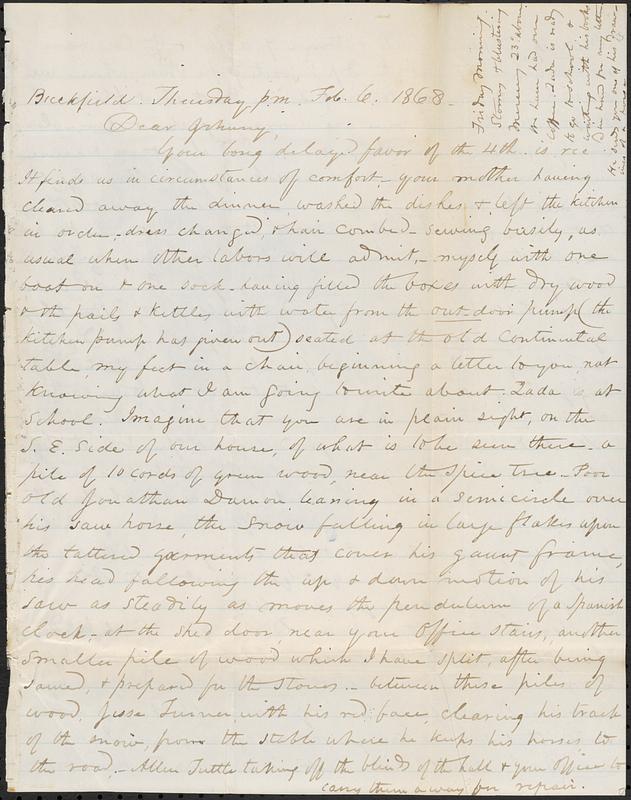 Buckfield. Thursday p.m. Feb. 6. 1868.
Dear Johnny,
Your long delayed favor of the 4th. is rec
It finds us in circumstances of comfort - your mother having
cleared away the dinner, washed the dishes & left the kitchen
in order, - dress changed, & hair combed - sewing busily, as
usual when other labors will admit, - myself with one
boot on & one sock - having filled the boxes with dry wood
& the pails & kettles with water from the out-door pump (the
kitchen pump has given out) seated at the old Continental
table, my feet in a chair, beginning a letter to you not
knowing what I am going to write about. Zada is at
School. Imagine that you are in plain sight, on the
S. E. side of our house, of what is to be seen there - a
pile of 10 cords of green wood, near the Spice tree - Poor
old Jonathan Damon leaning in a semicircle over
his saw horse, the snow falling in large flakes upon
the tattered garments that cover his gaunt frame,
his head following the up & down motion of his
saw as steadily as moves the pendulum of a Spanish
clock - at the shed door, near your Office stairs, another
smaller pile of wood which I have split, after being
sawed, & prepared for the stoves. - between these piles of
wood, Jesse Turner with his red face, clearing his track
of the snow, from the stable where he keeps his horses to
the road. - Allen Tuttle taking off the blinds of the hall & your office to
carry them away for repair.
Friday morning
Stormy & blustering
Mercury 23° above
We have had our
coffee. Zada is ready
to go to school, &
waiting with his books
in hand for my letter
He sends you one of his